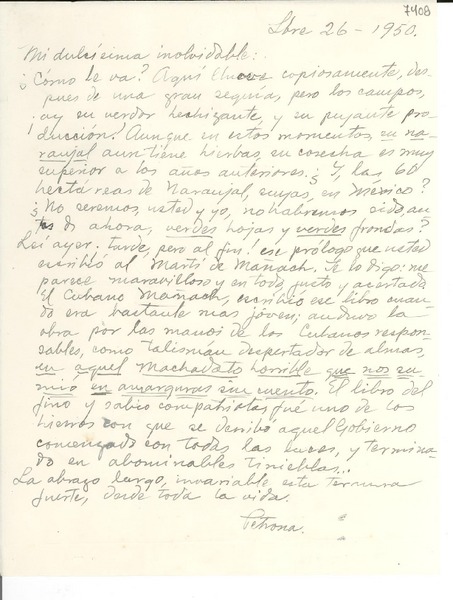 7408
Sbre 26-1950.
Mi dulcísima inolvidable:
¿Cómo le va? Aquí llueve copiosamente, des-
pues de una gran sequía, pero los campos,
¡ay su verdor hechizante, y su pujante pro-
ducción! Aunque en estos momentos, su na-
ranjal aun tiene hierbas su cosecha es muy
superior a los años anteriores. ¿Y, las 60
hectáreas de Naranjal, suyas, en México?
¿No seremos, usted y yo, no habremos sido, an-
tes de ahora, verdes hojas y verdes frondas?
Leí ayer: tarde, pero al fin! ese prólogo que usted
escribió al Martí de Mañach. Te lo digo: me
parece maravilloso y en todo justo y acertado.
El Cubano Mañach, escribió ese libro cuan-
do era bastante mas jóven; anduvo la
obra por las manos de los Cubanos respon-
sables, como talismán despertador de almas,
en aquel Machadato horrible que nos su-
mió en amarguras sin cuento. El libro del
fino y sabio compatriota, fué uno de los
hierros con que se derribó aquel Gobierno
comenzado con todas las luces, y termina-
do en abominables tinieblas...
La abrazo largo, invariable esta ternura
fuerte, desde toda la vida.
Petrona.